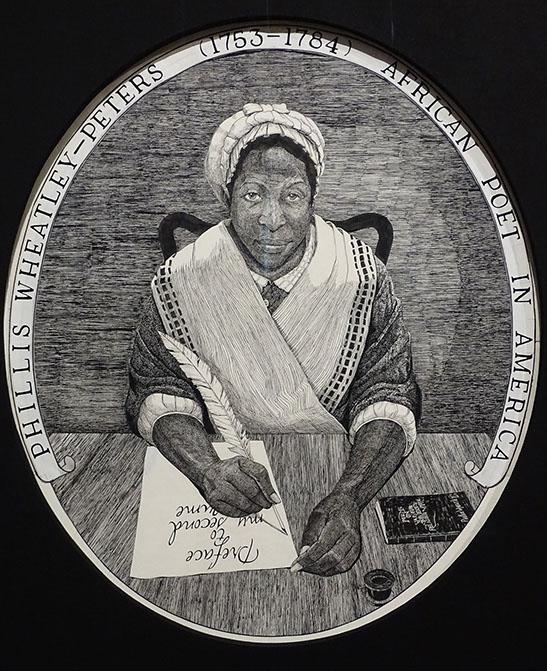 PHILLIS WHEATLEY-PETERS (1753-1784) AFRICAN POET IN AMERICA
Preface
to
my second
name